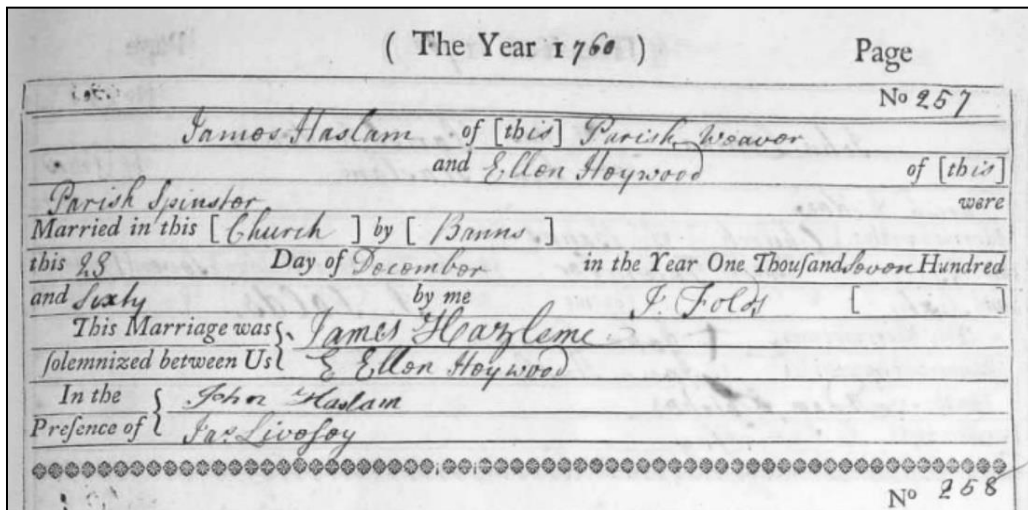 ( The Year 1760 ) Page
No 257
James Haslam of [this] Parish, Weaver
and Ellen Heywood of [this]
Parish Spinster were
Married in this [ Church ] by [ Banns ]
this 28 Day of December in the Year One Thouſand Seven Hundred
and Sixty by me J. Folds [ ]
This Marriage was James Hazleme
ſolemnized between Us E Ellen Heywood
In the John Haslam
Preſence of Jas Liveſey
No 258